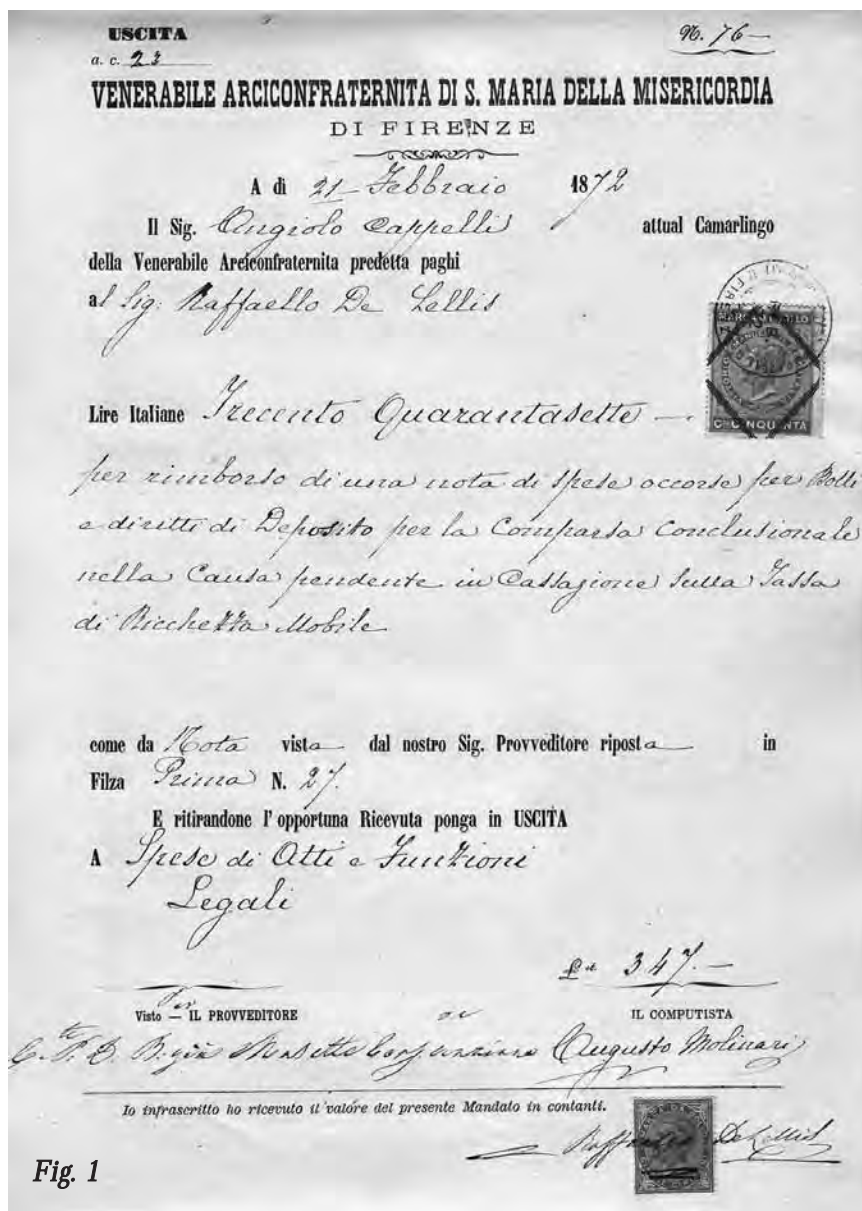 USCITA
N. 76 —
a. c. 23
VENERABILE ARCICONFRATERNITA DI S. MARIA DELLA MISERICORDIA
DI FIRENZE
A dì 21 Febbraio 1872
Il Sig. Angiolo Cappelli attual Camarlingo
della Venerabile Arciconfraternita predetta paghi
al Sig: Raffaello De Lellis
Lire Italiane Trecento Quarantasette —
C.MI CINQUANTA
per rimborso di una nota di spese occorse per Bolli
e diritti di Deposito per la Comparsa Conclusionale
nella Causa pendente in Cassazione sulla Tassa
di Ricchezza Mobile
come da Nota vista dal nostro Sig. Provveditore riposta in
Filza Prima N. 27.
E ritirandone l'opportuna Ricevuta ponga in USCITA
A Spese di Atti e Funzioni
Legali
347. —
Visto — IL PROVVEDITORE
IL COMPUTISTA
Augusto Molinari
Io infrascritto ho ricevuto il valore del presente Mandato in contanti.
Raffaello De Lellis
Fig. 1